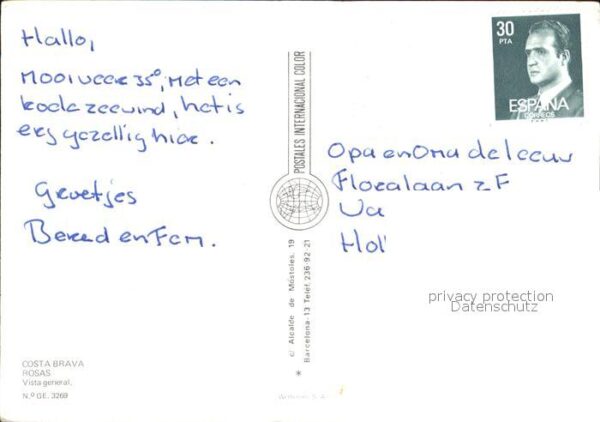 Hallo,
Mooi weer 35°, met een
koele zeewind, het is
erg gezellig hier.
Groetjes
Berend en Fam.
POSTALES INTERNACIONAL COLOR
c/ Alcalde de Móstoles, 19
Barcelona-13 Telef. 236-92-21
*
30
PTA
ESPAÑA
CORREOS
Opa en Oma de Leeuw
Floralaan 2F
Va
Hol
privacy protection
Datenschutz
COSTA BRAVA
ROSAS
Vista general.
N.º GE. 3269